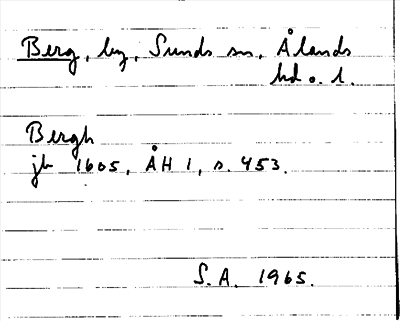 Berg, by, Sunds sn, Ålands
hd o. l.
Bergh
jb 1605, ÅH 1, s. 453.
S.A. 1965.